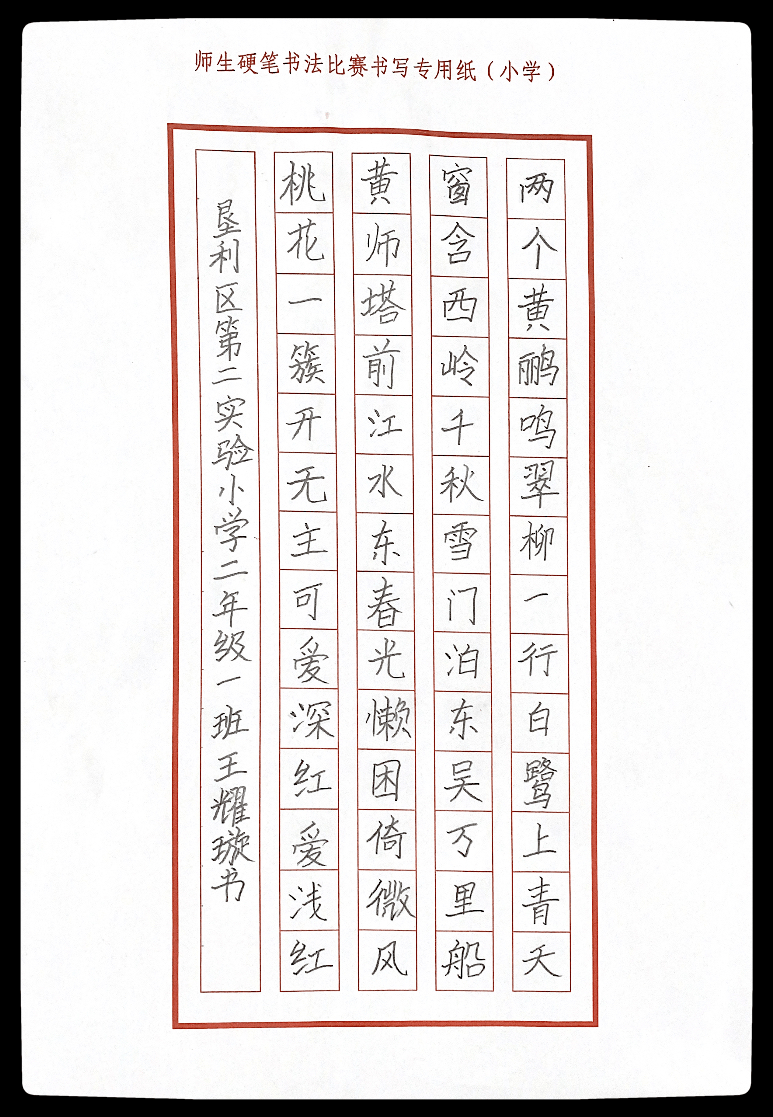 师生硬笔书法比赛书写专用纸（小学）
两个黄鹂鸣翠柳一行白鹭上青天
窗含西岭千秋雪门泊东吴万里船
黄师塔前江水东春光懒困倚微风
桃花一簇开无主可爱深红爱浅红
垦利区第二实验小学二年级一班王耀璇书